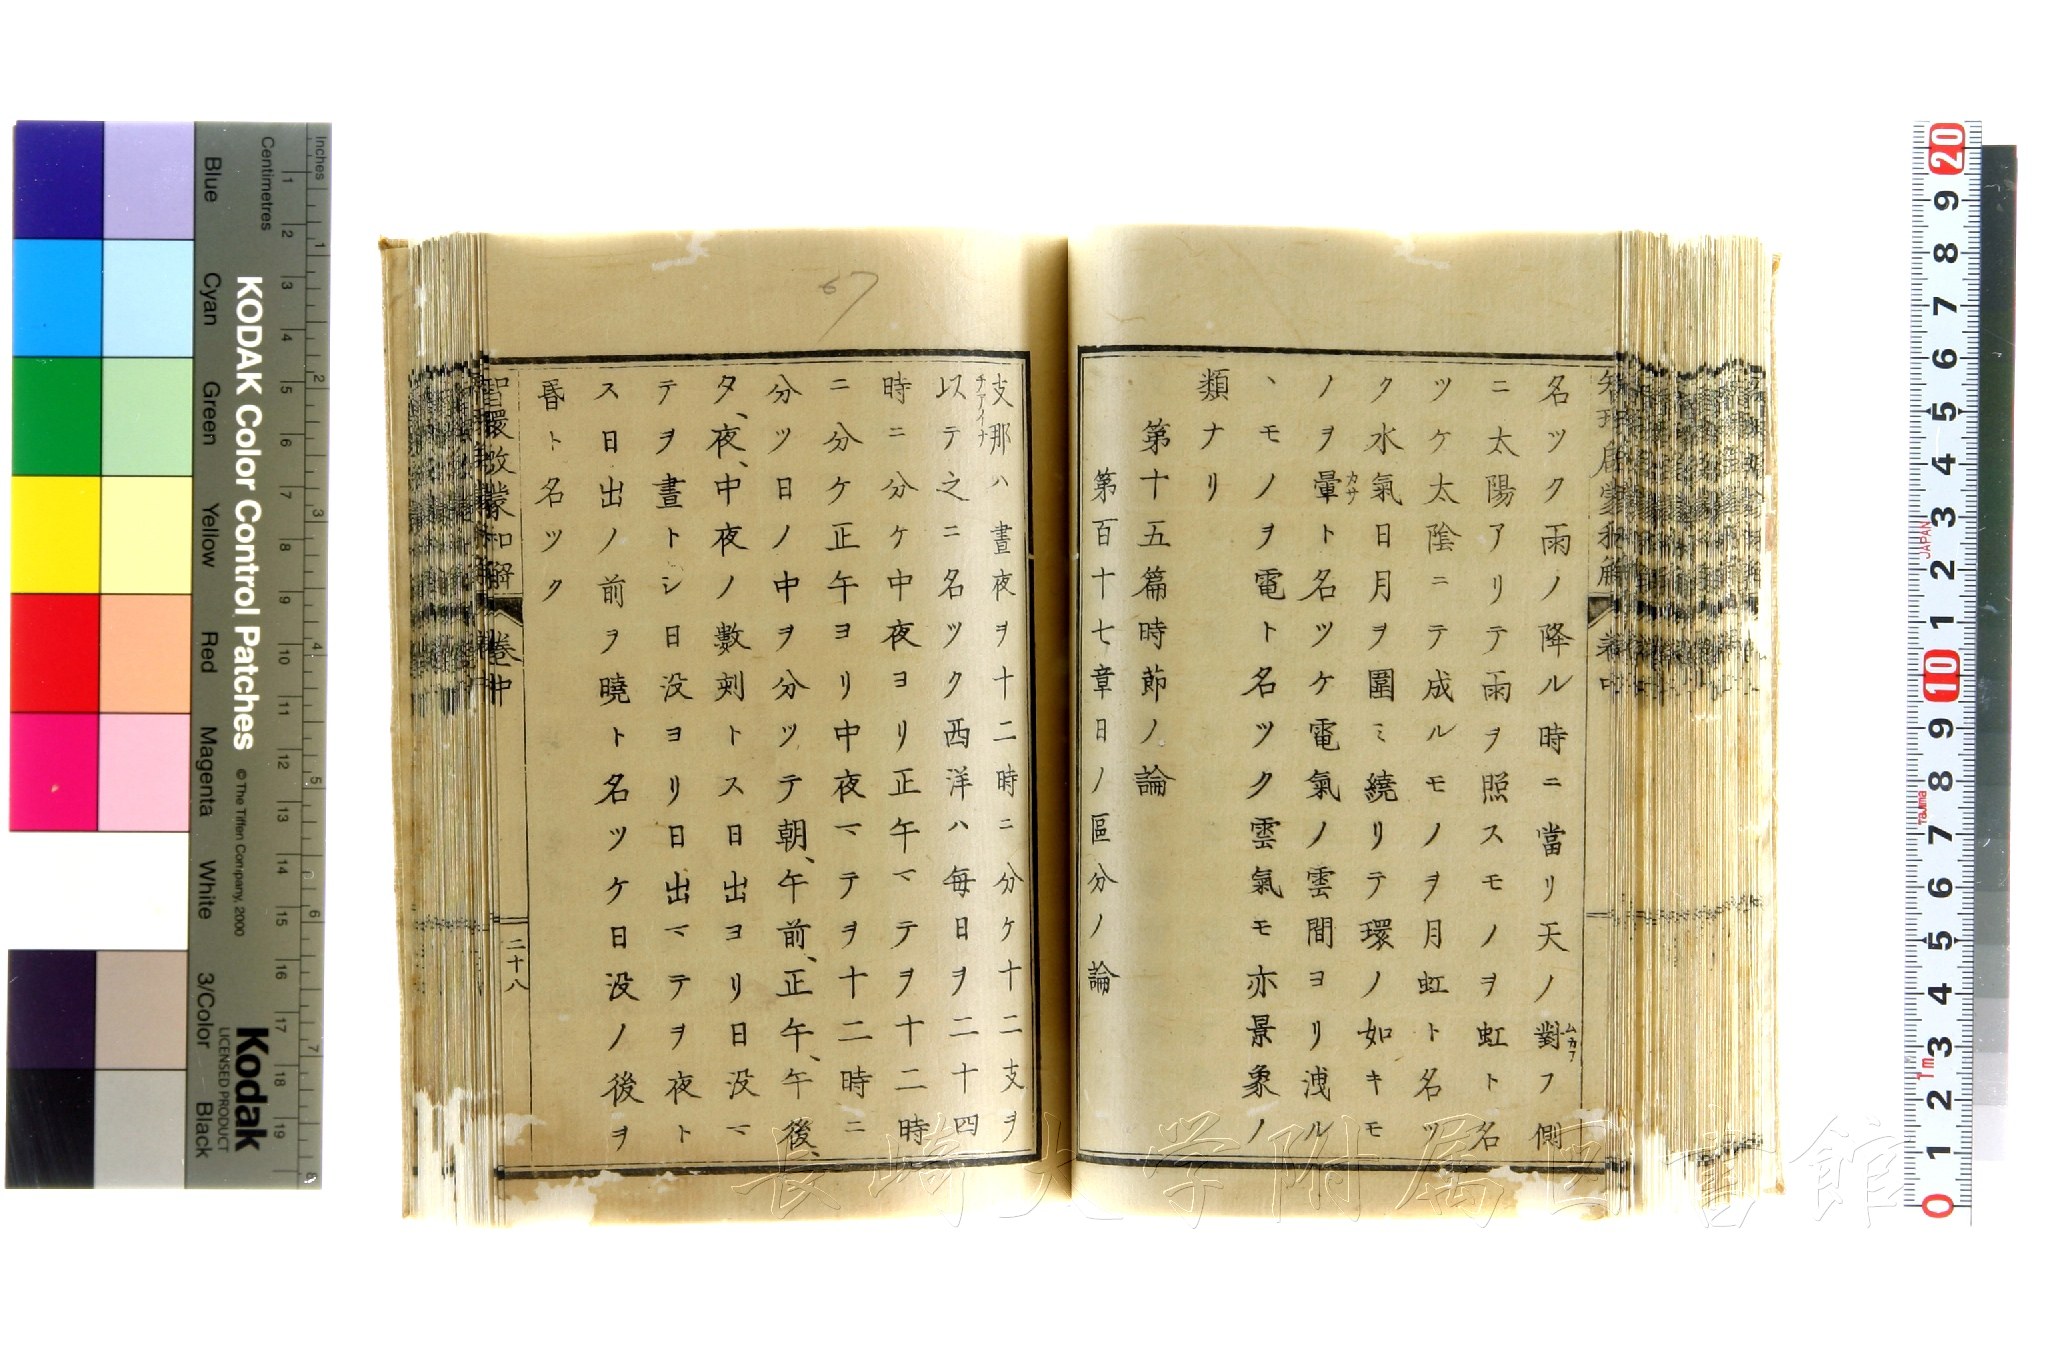 名ツク雨ノ降ル時ニ當リ天ノ對フ側
ムカフ
ニ太陽アリテ雨ヲ照スモノヲ虹ト名
ツケ太陰ニテ成ルモノヲ月虹ト名ツ
ク水氣日月ヲ圍ミ繞リテ環ノ如キモ
ノヲ暈ト名ツケ電氣ノ雲間ヨリ洩ル
カサ
丶モノヲ電ト名ツク雲氣モ亦景象ノ
類ナリ
第十五篇時節ノ論
第百十七章日ノ區分ノ論
支那ハ晝夜ヲ十二時ニ分ケ十二支ヲ
チアイナ
以テ之ニ名ツク西洋ハ毎日ヲ二十四
時ニ分ケ中夜ヨリ正午マテヲ十二時
ニ分ケ正午ヨリ中夜マテヲ十二時ニ
分ツ日ノ中ヲ分ツテ朝、午前、正午、午後、
タ、夜、中夜ノ數刻トス日出ヨリ日没マ
テヲ晝トシ日没ヨリ日出マテヲ夜ト
ス日出ノ前ヲ曉ト名ツケ日没ノ後ヲ
昏ト名ツク
智環啟蒙和解
卷中
二十八
67
KODAK Color Control Patches
© The Tiffen Company, 2000
Kodak
LICENSED PRODUCT
Inches
Centimetres
Blue
Cyan
Green
Yellow
Red
Magenta
White
3/Color
Black
1 2 3 4 5 6 7 8 9 10 11 12 13 14 15 16 17 18 19
1 2 3 4 5 6 7 8
20 9 8 7 6 5 4 3 2 1 10 9 8 7 6 5 4 3 2 1 0
JAPAN
Tajima
長崎大学附属図書館